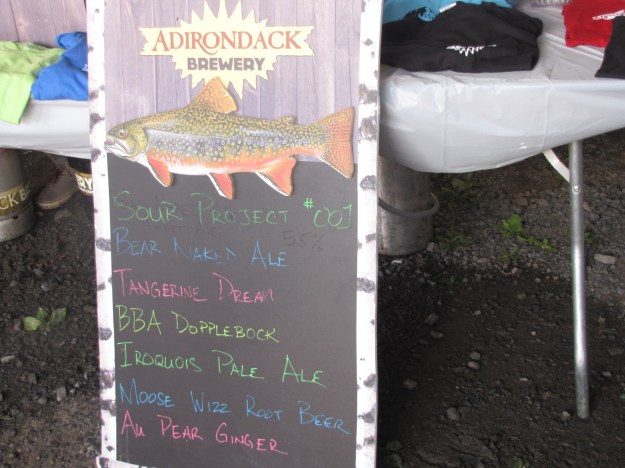 ADIRONDACK
BREWERY
SOUR PROJECT #001
5.5%
BEAR NAKED ALE
TANGERINE DREAM
BBA DOPPLEBOCK
IROQUOIS PALE ALE
MOOSE WIZZ ROOT BEER
AU PEAR GINGER